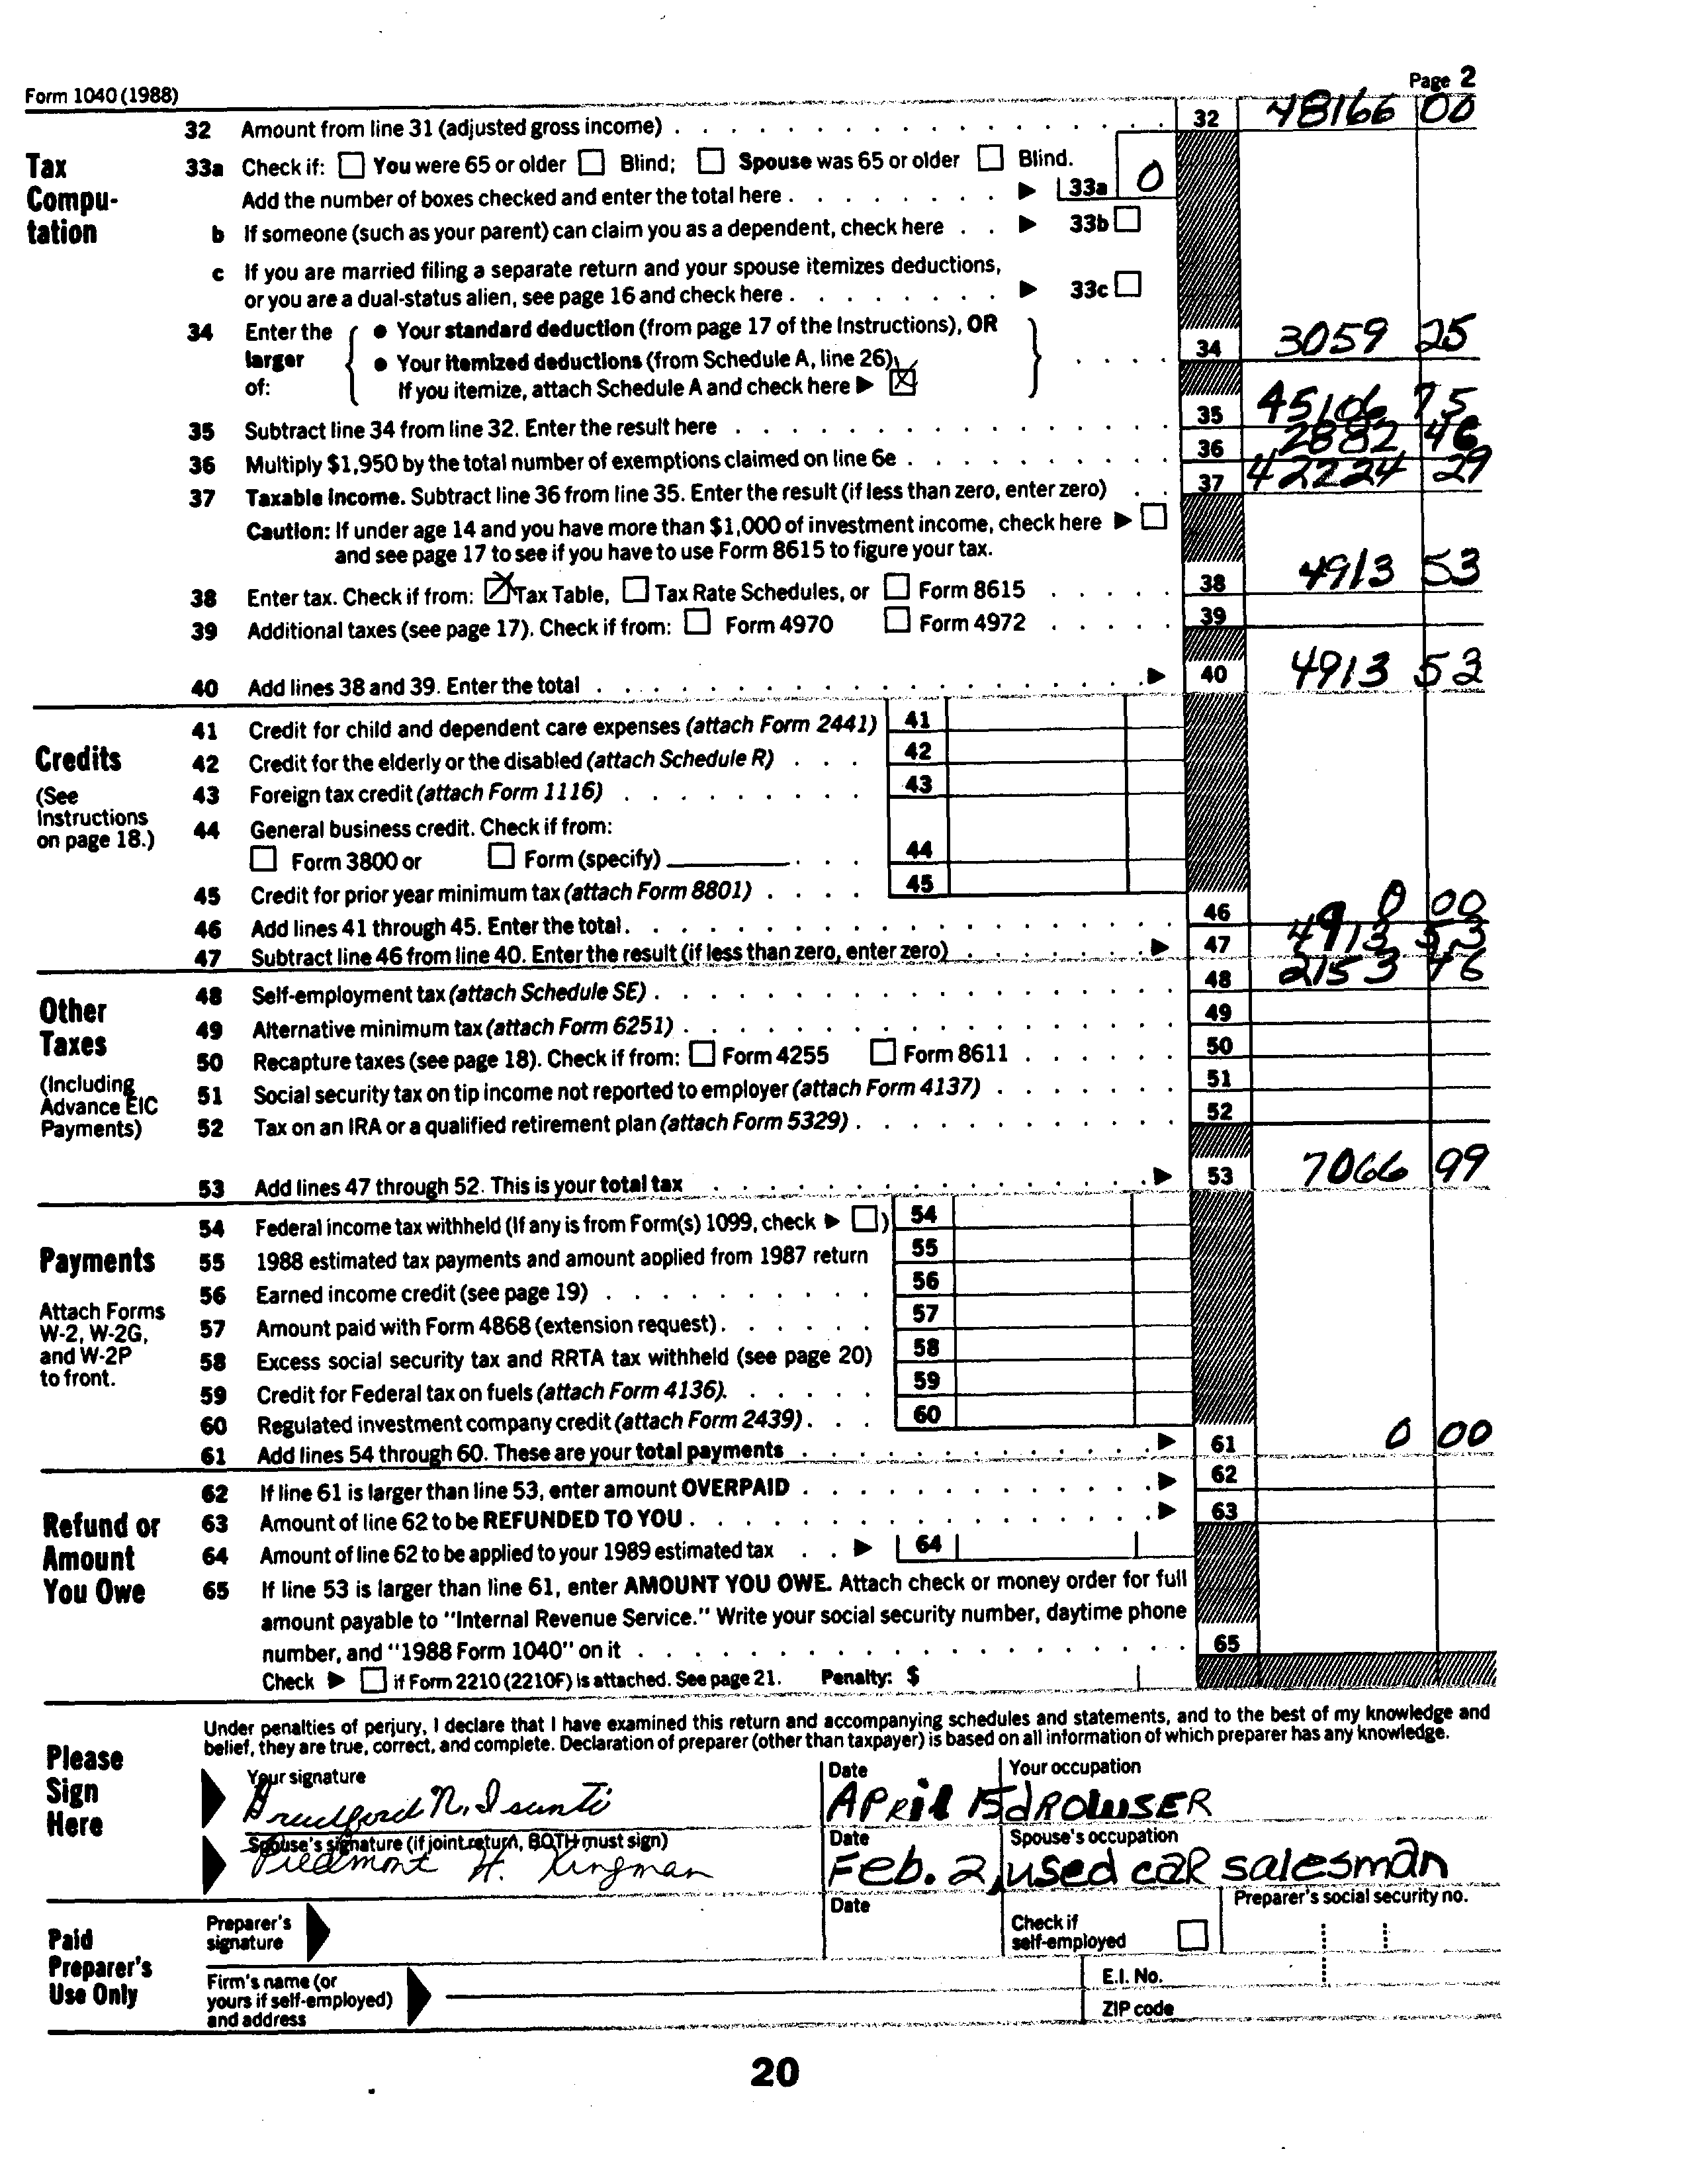 Form 1040 (1988) Page 2
32 Amount from line 31 (adjusted gross income) . . . 32 48166 00
Tax Compu- tation
33a Check if: You were 65 or older Blind; Spouse was 65 or older Blind.
Add the number of boxes checked and enter the total here . . . 33a 0
b If someone (such as your parent) can claim you as a dependent, check here . . 33b
c If you are married filing a separate return and your spouse itemizes deductions,
or you are a dual-status alien, see page 16 and check here . . . 33c
34 Enter the larger of: { • Your standard deduction (from page 17 of the Instructions), OR
• Your itemized deductions (from Schedule A, line 26). } . . . . 34 3059 25
If you itemize, attach Schedule A and check here ▶ X
35 Subtract line 34 from line 32. Enter the result here . . . 35 45106 75
36 Multiply $1,950 by the total number of exemptions claimed on line 6e . . . 36 2882 46
37 Taxable income. Subtract line 36 from line 35. Enter the result (if less than zero, enter zero) . . 37 42224 29
Caution: If under age 14 and you have more than $1,000 of investment income, check here ▶
and see page 17 to see if you have to use Form 8615 to figure your tax.
38 Enter tax. Check if from: X Tax Table, Tax Rate Schedules, or Form 8615 . . . . . 38 4913 53
39 Additional taxes (see page 17). Check if from: Form 4970 Form 4972 . . . . . 39
40 Add lines 38 and 39. Enter the total . . . ▶ 40 4913 53
Credits
(See Instructions on page 18.)
41 Credit for child and dependent care expenses (attach Form 2441) 41
42 Credit for the elderly or the disabled (attach Schedule R) . . . 42
43 Foreign tax credit (attach Form 1116) . . . 43
44 General business credit. Check if from:
Form 3800 or Form (specify) . . . 44
45 Credit for prior year minimum tax (attach Form 8801) . . . . 45
46 Add lines 41 through 45. Enter the total . . . 46 0 00
47 Subtract line 46 from line 40. Enter the result (if less than zero, enter zero) . . . ▶ 47 4913 53
Other Taxes
(Including Advance EIC Payments)
48 Self-employment tax (attach Schedule SE) . . . 48 2153 46
49 Alternative minimum tax (attach Form 6251) . . . 49
50 Recapture taxes (see page 18). Check if from: Form 4255 Form 8611 . . . 50
51 Social security tax on tip income not reported to employer (attach Form 4137) . . . 51
52 Tax on an IRA or a qualified retirement plan (attach Form 5329) . . . 52
53 Add lines 47 through 52. This is your total tax . . . ▶ 53 7066 99
Payments
Attach Forms W-2, W-2G, and W-2P to front.
54 Federal income tax withheld (If any is from Form(s) 1099, check ▶ ) 54
55 1988 estimated tax payments and amount applied from 1987 return 55
56 Earned income credit (see page 19) . . . 56
57 Amount paid with Form 4868 (extension request) . . . 57
58 Excess social security tax and RRTA tax withheld (see page 20) 58
59 Credit for Federal tax on fuels (attach Form 4136). . . . 59
60 Regulated investment company credit (attach Form 2439) . . . 60
61 Add lines 54 through 60. These are your total payments . . . ▶ 61 0 00
Refund or Amount You Owe
62 If line 61 is larger than line 53, enter amount OVERPAID . . . ▶ 62
63 Amount of line 62 to be REFUNDED TO YOU . . . ▶ 63
64 Amount of line 62 to be applied to your 1989 estimated tax . . ▶ 64
65 If line 53 is larger than line 61, enter AMOUNT YOU OWE. Attach check or money order for full
amount payable to "Internal Revenue Service." Write your social security number, daytime phone
number, and "1988 Form 1040" on it . . . 65
Check ▶ if Form 2210 (2210F) is attached. See page 21. Penalty: $
Please Sign Here
Under penalties of perjury, I declare that I have examined this return and accompanying schedules and statements, and to the best of my knowledge and
belief, they are true, correct, and complete. Declaration of preparer (other than taxpayer) is based on all information of which preparer has any knowledge.
Your signature Date Your occupation
Bradford N. Isanti APRil 15 dROWSER
Spouse's signature (if joint return, BOTH must sign) Date Spouse's occupation
Piedmont H. Kingman Feb. 2, used caR salesman
Paid Preparer's Use Only
Preparer's signature Date Check if self-employed Preparer's social security no.
Firm's name (or yours if self-employed) and address E.I. No.
ZIP code
20